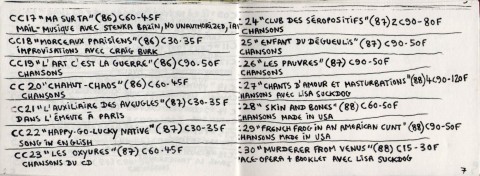 CC17 "MA SURTA" (86) C60-45F
MAIL-MUSIQUE AVEC STENKA BAZIN, NO UNAUTHORIZED,
CC18 "MORCEAUX PARISIENS" (86) C30-35F
IMPROVISATIONS AVEC CRAIG BURK
CC19 "L'ART C'EST LA GUERRE" (86) C90-50F
CHANSONS
CC20 "CHAHUT-CHAOS" (86) C60-45F
CHANSONS
CC21 "L'AUXILIAIRE DES AVEUGLES" (87) C30-35F
DANS L'ÉMEUTE À PARIS
CC22 "HAPPY-GO-LUCKY NATIVE" (87) C30-35F
SONG IN ENGLISH
CC23 "LES OXYURES" (87) C60-45F
CHANSONS DU CD
:24 "CLUB DES SÉROPOSITIFS" (87) 2C90-80F
CHANSONS
25 "ENFANT DU DÉGUEULIS" (87) C90-50F
CHANSONS
:26 "LES PAUVRES" (87) C90-50F
CHANSONS
:27 "CHANTS D'AMOUR ET MASTURBATIONS" (88) 4C90-120F
HANSONS AVEC LISA SUCKDOG
:28 "SKIN AND BONES" (88) C60-50F
HANSONS MADE IN USA
:29 "FRENCH FROG IN AN AMERICAN CUNT" (88) C90-50F
HANSONS MADE IN USA
:30 "MURDERER FROM VENUS" (88) C15-30F
ACE-OPERA + BOOKLET AVEC LISA SUCKDOG
7